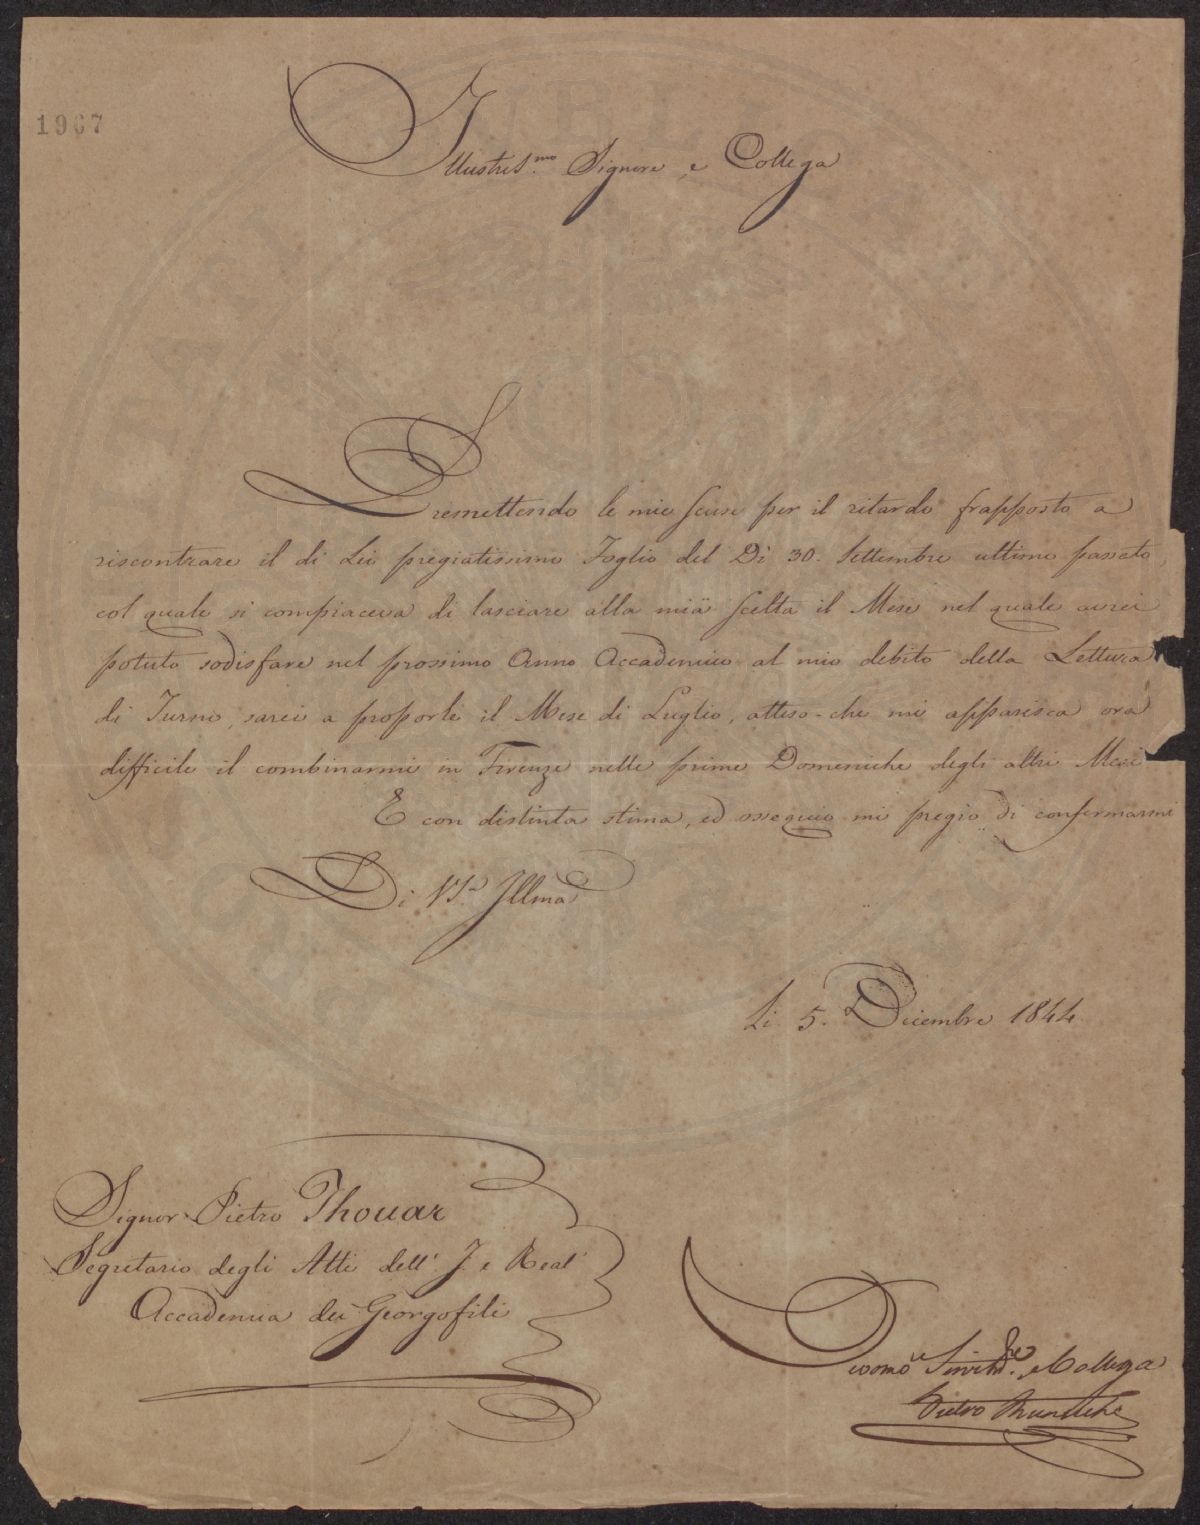 1967
Illustris.mo Signore, e Collega
Premettendo le mie scuse per il ritardo frapposto a
riscontrare il di Lei pregiatissimo Foglio del Dì 30. Settembre ultimo passato,
col quale si compiaceva di lasciare alla mia scelta il Mese nel quale avrei
potuto sodisfare nel prossimo Anno Accademico al mio debito della Lettura
di Turno, sarei a proporle il Mese di Luglio, atteso-che mi apparisca ora
difficile il combinarmi in Firenze nelle prime Domeniche degli altri Mesi
E con distinta stima, ed ossequio mi pregio di confermarmi
Di V.S. Illma
Li 5. Dicembre 1844.
Signor Pietro Thouar
Segretario degli Atti dell' I. e Real'
Accademia dei Georgofili
e Collega
Pietro